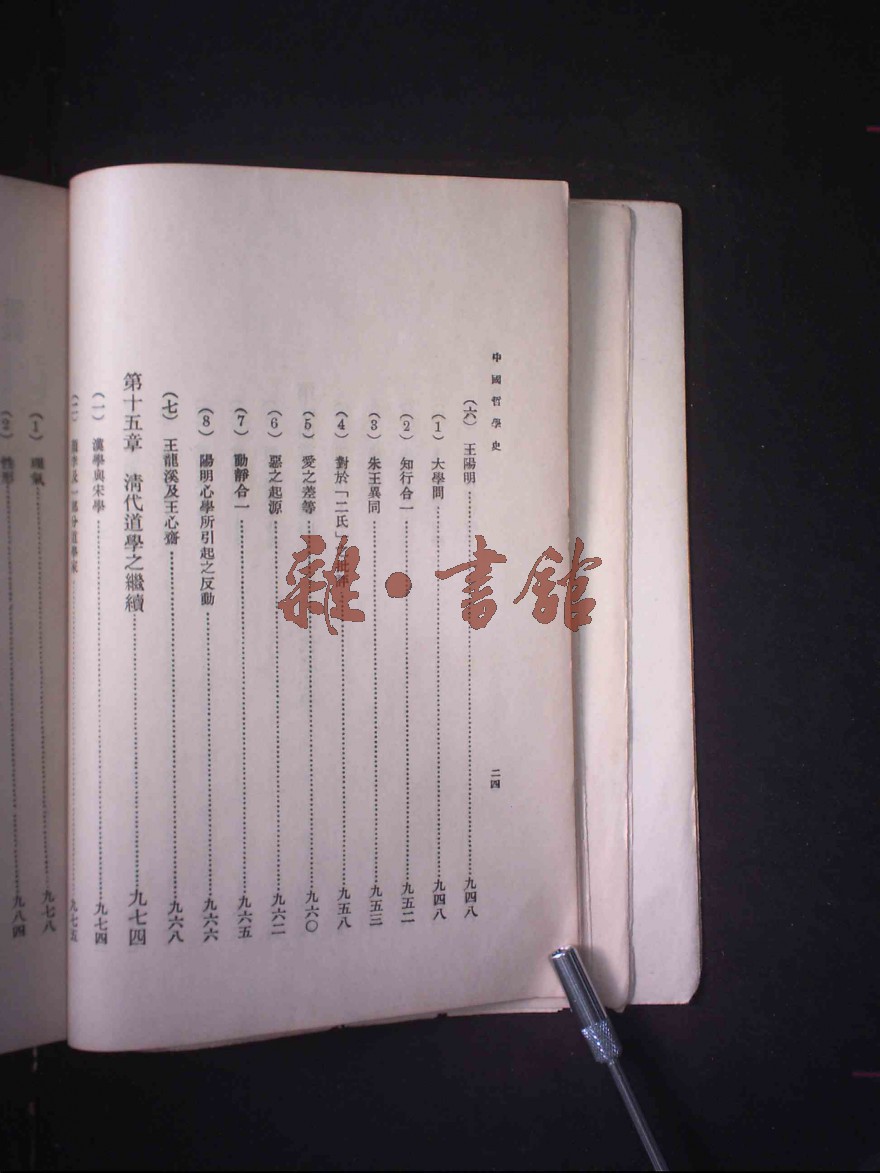 中國哲學史
二四
（六） 王陽明……九四八
（1） 大學問……九四八
（2） 知行合一……九五二
（3） 朱王異同……九五三
（4） 對於「二氏……九五八
（5） 愛之差等……九六〇
（6） 惡之起源……九六二
（7） 動靜合一……九六五
（8） 陽明心學所引起之反動……九六六
（七） 王龍溪及王心齋……九六八
第十五章 清代道學之繼續……九七四
（一） 漢學與宋學……九七四
（二） 李及一部分道學家……九七五
（1） 理氣……九七八
（2） 性形……九八四
雜·書館